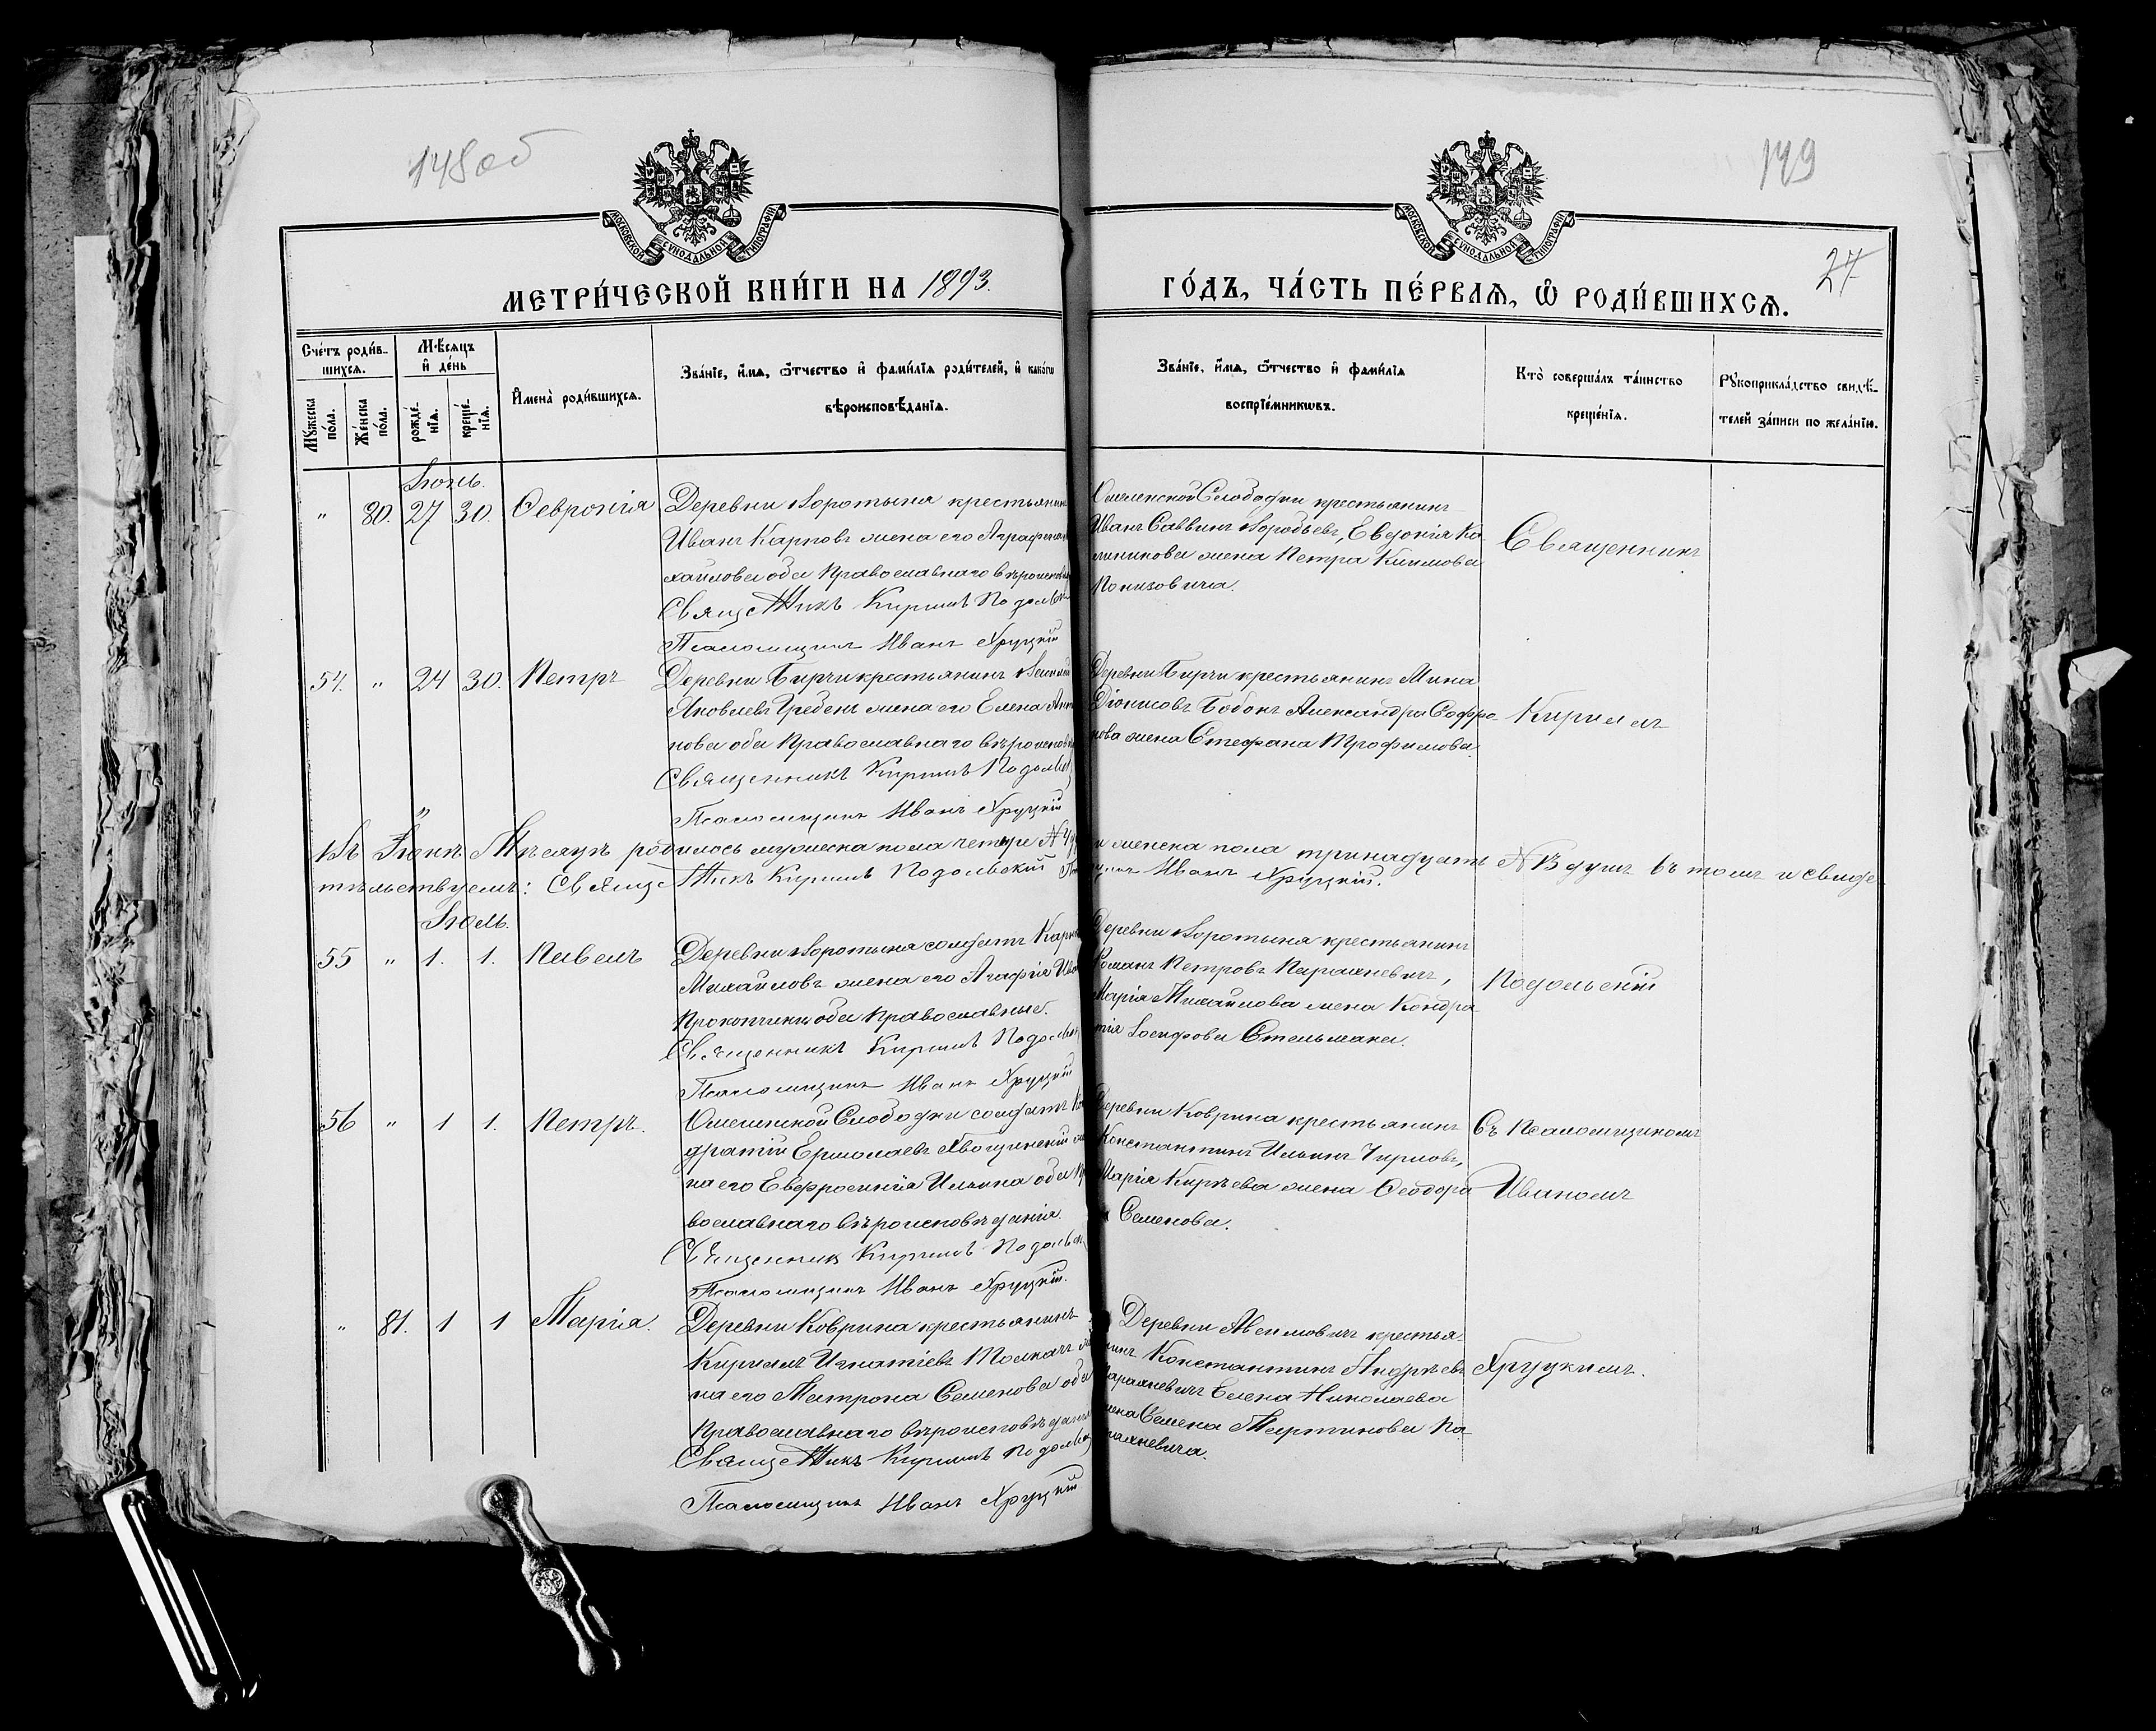 148об
149
МОСКОВСКОЙ СУНОДАЛЬНОЙ ТИПОГРАФІИ
МОСКОВСКОЙ СУНОДАЛЬНОЙ ТИПОГРАФІИ
27
МЕТРИ́ЧЕСКОЙ КНИ́ГИ НА 1893.
ГО́ДЪ, ЧА́СТЬ ПЕ́РВАѦ, Ѽ РОДИ́ВШИХСѦ.
Сче́тъ роди́в-
шихсѧ.
Мѣ́сѧцъ
и҆ де́нь
Мꙋ́жеска
по́ла.
Же́нска
по́ла.
рожде́-
нїѧ.
креще́-
нїѧ.
И҆мена̀ роди́вшихсѧ.
Зва́нїе, и҆́мѧ, ѻ҆́тчество и҆ фами́лїѧ роди́телей, и҆ како́гѡ
вѣроисповѣ́данїѧ.
Зва́нїе, и҆́мѧ, ѻ҆́тчество и҆ фами́лїѧ
воспрїе́мникѡвъ.
Кто̀ соверша́лъ та́инство
креще́нїѧ.
Рꙋкоприкла́дство свидѣ́-
телей за́писи по жела́нїю.
Іюнь.
" 80. 27 30. Февронія
Деревни Воротына крестьянинъ
Иванъ Карповъ жена его Аграфена
хайлова оба Православнаго вѣроисповѣ
Священникъ Кириллъ Подольск
Псаломщикъ Иванъ Хруцкій
Слободки крестьянинъ
Иванъ Саввинъ Воробьевъ, Евдокія Ка-
линикова жена Петра Климова
Понизовича.
Священникъ
54. " 24 30. Петръ
Деревни Бирчи крестьянинъ
Яковлевъ Гребень жена его Елена Ант
нова оба Православнаго вѣроисповѣ
Священникъ Кириллъ Подольск
Псаломщикъ Иванъ Хруцкій
Деревни Бирчи крестьянинъ Мина
Діонисовъ Бобокъ Александра Софро-
нова жена Стефана Трофимова.
Кириллъ
Въ Іюнѣ Мѣсяцѣ родилось мужеска пола четыре № 4 и женска пола тринадцать № 13 душъ въ томъ и свидѣ
тельствуемъ: Священникъ Кириллъ Подольскій Иванъ Хруцкій.
Іюль.
55 " 1. 1. Павелъ
Деревни Воротына солдатъ Карпъ
Михайловъ жена его Агафія Ива
Прокопчики оба Православные.
Священникъ Кириллъ Подольск
Псаломщикъ Иванъ Хруцкій
Деревни Воротына крестьянинъ
Романъ Петровъ Парахневичъ,
Марія Михайлова жена Кондра-
тія Іосифова Стельмаха.
Подольскій
56 " 1 1. Петръ.
Слободки солдатъ Кон
дратій Ермолаевъ Хвощинскій же
на его Евфросинія Ильина оба Пра
вославнаго вѣроисповѣданія.
Священник Кириллъ Подольск
Псаломщикъ Иванъ Хруцкій.
Деревни Коврина крестьянинъ
Константинъ Ильинъ Чирловъ,
Марія Кирѣева жена Феодора
Семенова.
Съ Псаломщикомъ
Иваномъ
" 81. 1 1 Марія.
Деревни Коврина крестьянинъ
Кириллъ Игнатіевъ Толкачъ же
на его Матрона Семенова оба
Православнаго вѣроисповѣдан
Священникъ Кириллъ Подольск
Псаломщикъ Иванъ Хруцкій
Деревни крестья-
нинъ Константинъ Андреевъ
Парахневичъ Елена Николаева
жена Семена Мартинова Па-
рахневича.
Хруцкимъ.